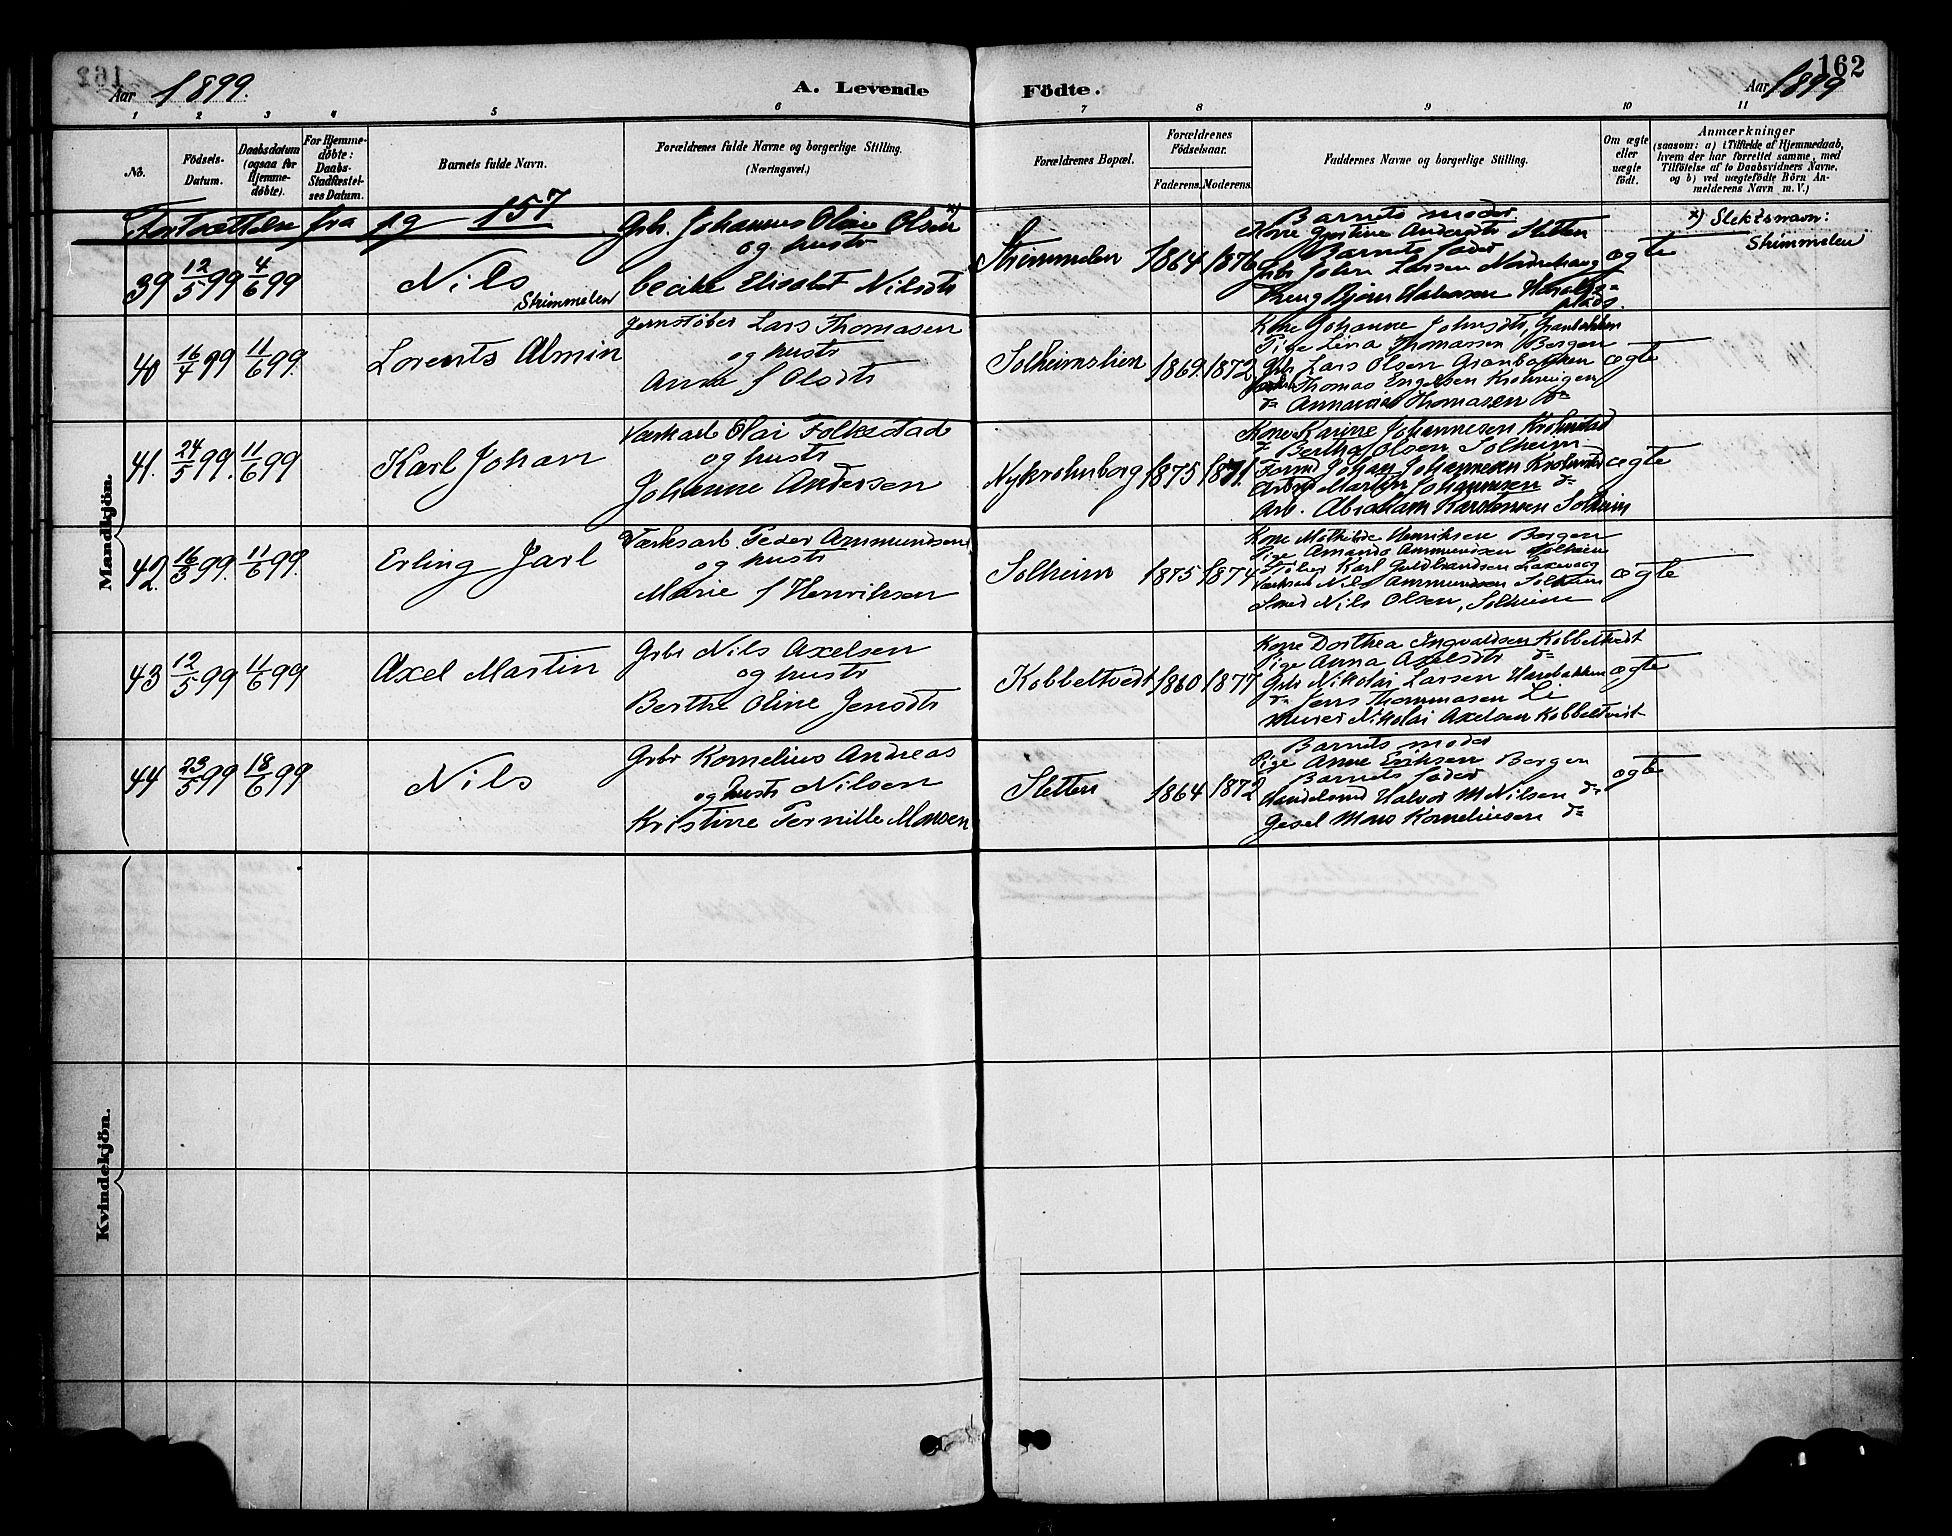 Aar 1899. A. Levende Födte. Aar 1899 162
1 2 3 4 5 6 7 8 9 10 11
No.
Födsels-Datum.
Daabsdatum (ogsaa for Hjemme-döbte).
For Hjemme-döbte: Daabs-Stadfæstel-ses Datum.
Barnets fulde Navn.
Forældrenes fulde Navne og borgerlige Stilling.
(Næringsvei.)
Forældrenes Bopæl.
Forældrenes Födselsaar.
Faderens. Moderens.
Faddernes Navne og borgerlige Stilling.
Om ægte eller uægte födt.
Anmærkninger
(saasom: a) i Tilfælde af Hjemmedaab, hvem der har forrettet samme, med Tilföielse af to Daabsvidners Navne, og b) ved uægtefödte Börn An-melderens Navn m. V.)
Mandkjön.
Fortsættelse fra pg 157
39 12/5 99 4/6 99 Nils Skimmelen
Gbr. Johannes Oline Olsen x)
og hustr
Cecilie Elisabet Nilsdtr
Skimmelen 1864 1876
Barnets moder
Kone Gurtine Andersdtr Sletten
Barnets fader
Gbr John Larsen
Ung Bjørn
ægte
x) Slektsnavn:
Skimmelen
40 16/4 99 11/6 99. Lorents Almin
Jernstøber Lars Thomasen
og hustr
Anna f Olsdtr
Solheimslien 1869. 1872
Kone Johanne Johnsdtr, Granbakken
Pige Lina Thomassen Bergen
Gbr Lars Olsen Granbakken
Thomas Engelsen Kronningen
do Thomasen do
ægte
41. 24/5 99. 11/6 99 Karl Johan
Værkarb Olai Folkestad
og hustr
Johanne Andersen
Nykrohnborg 1875 1871.
Kone Karine Johannesen Krohnstad
do Bertha Olsen Solheim
Form Johan Johannesen
Arbm Martin Johannesen do
Arb. Abraham Karstensen Solheim
ægte
42. 16/3 99. 11/6 99. Erling Jarl
Værksarb. Peder Ammundsen
og hustr
Marie f Henriksen
Solheim 1875 1874
Kone Mathilde Henriksen Bergen
Pige Amanda Ammundsen Solheim
Støber Karl Guldbrandsen Laxevaag
Værksarb Nils Ammundsen Solheim
Smed Nils Olsen, Solheim
ægte
43 12/5 99 11/6 99 Axel Martin
Gbr Nils Axelsen
og hustr
Berthe Oline Jensdtr
Kobbeltvedt 1860 1877
Kone Dorthea Ingvaldsen Kobbeltvedt
Pige Anna Axelsdtr do
Gbr Nikolai Larsen
do Jens Thommasen Li
Murer Nikolai Axelsen Kobbeltvedt
ægte
44 23/5 99 18/6 99 Nils
Gbr Kornelius Andreas
og hustr Nilsen
Kristine Pernille Monsen
Sletten 1864 1872
Barnets moder
Pige Anne Eriksen Bergen
Barnets fader
Handelsmd Halvor M Nilsen do
Gesel Mons Korneliusen do
ægte
Kvindekjön.